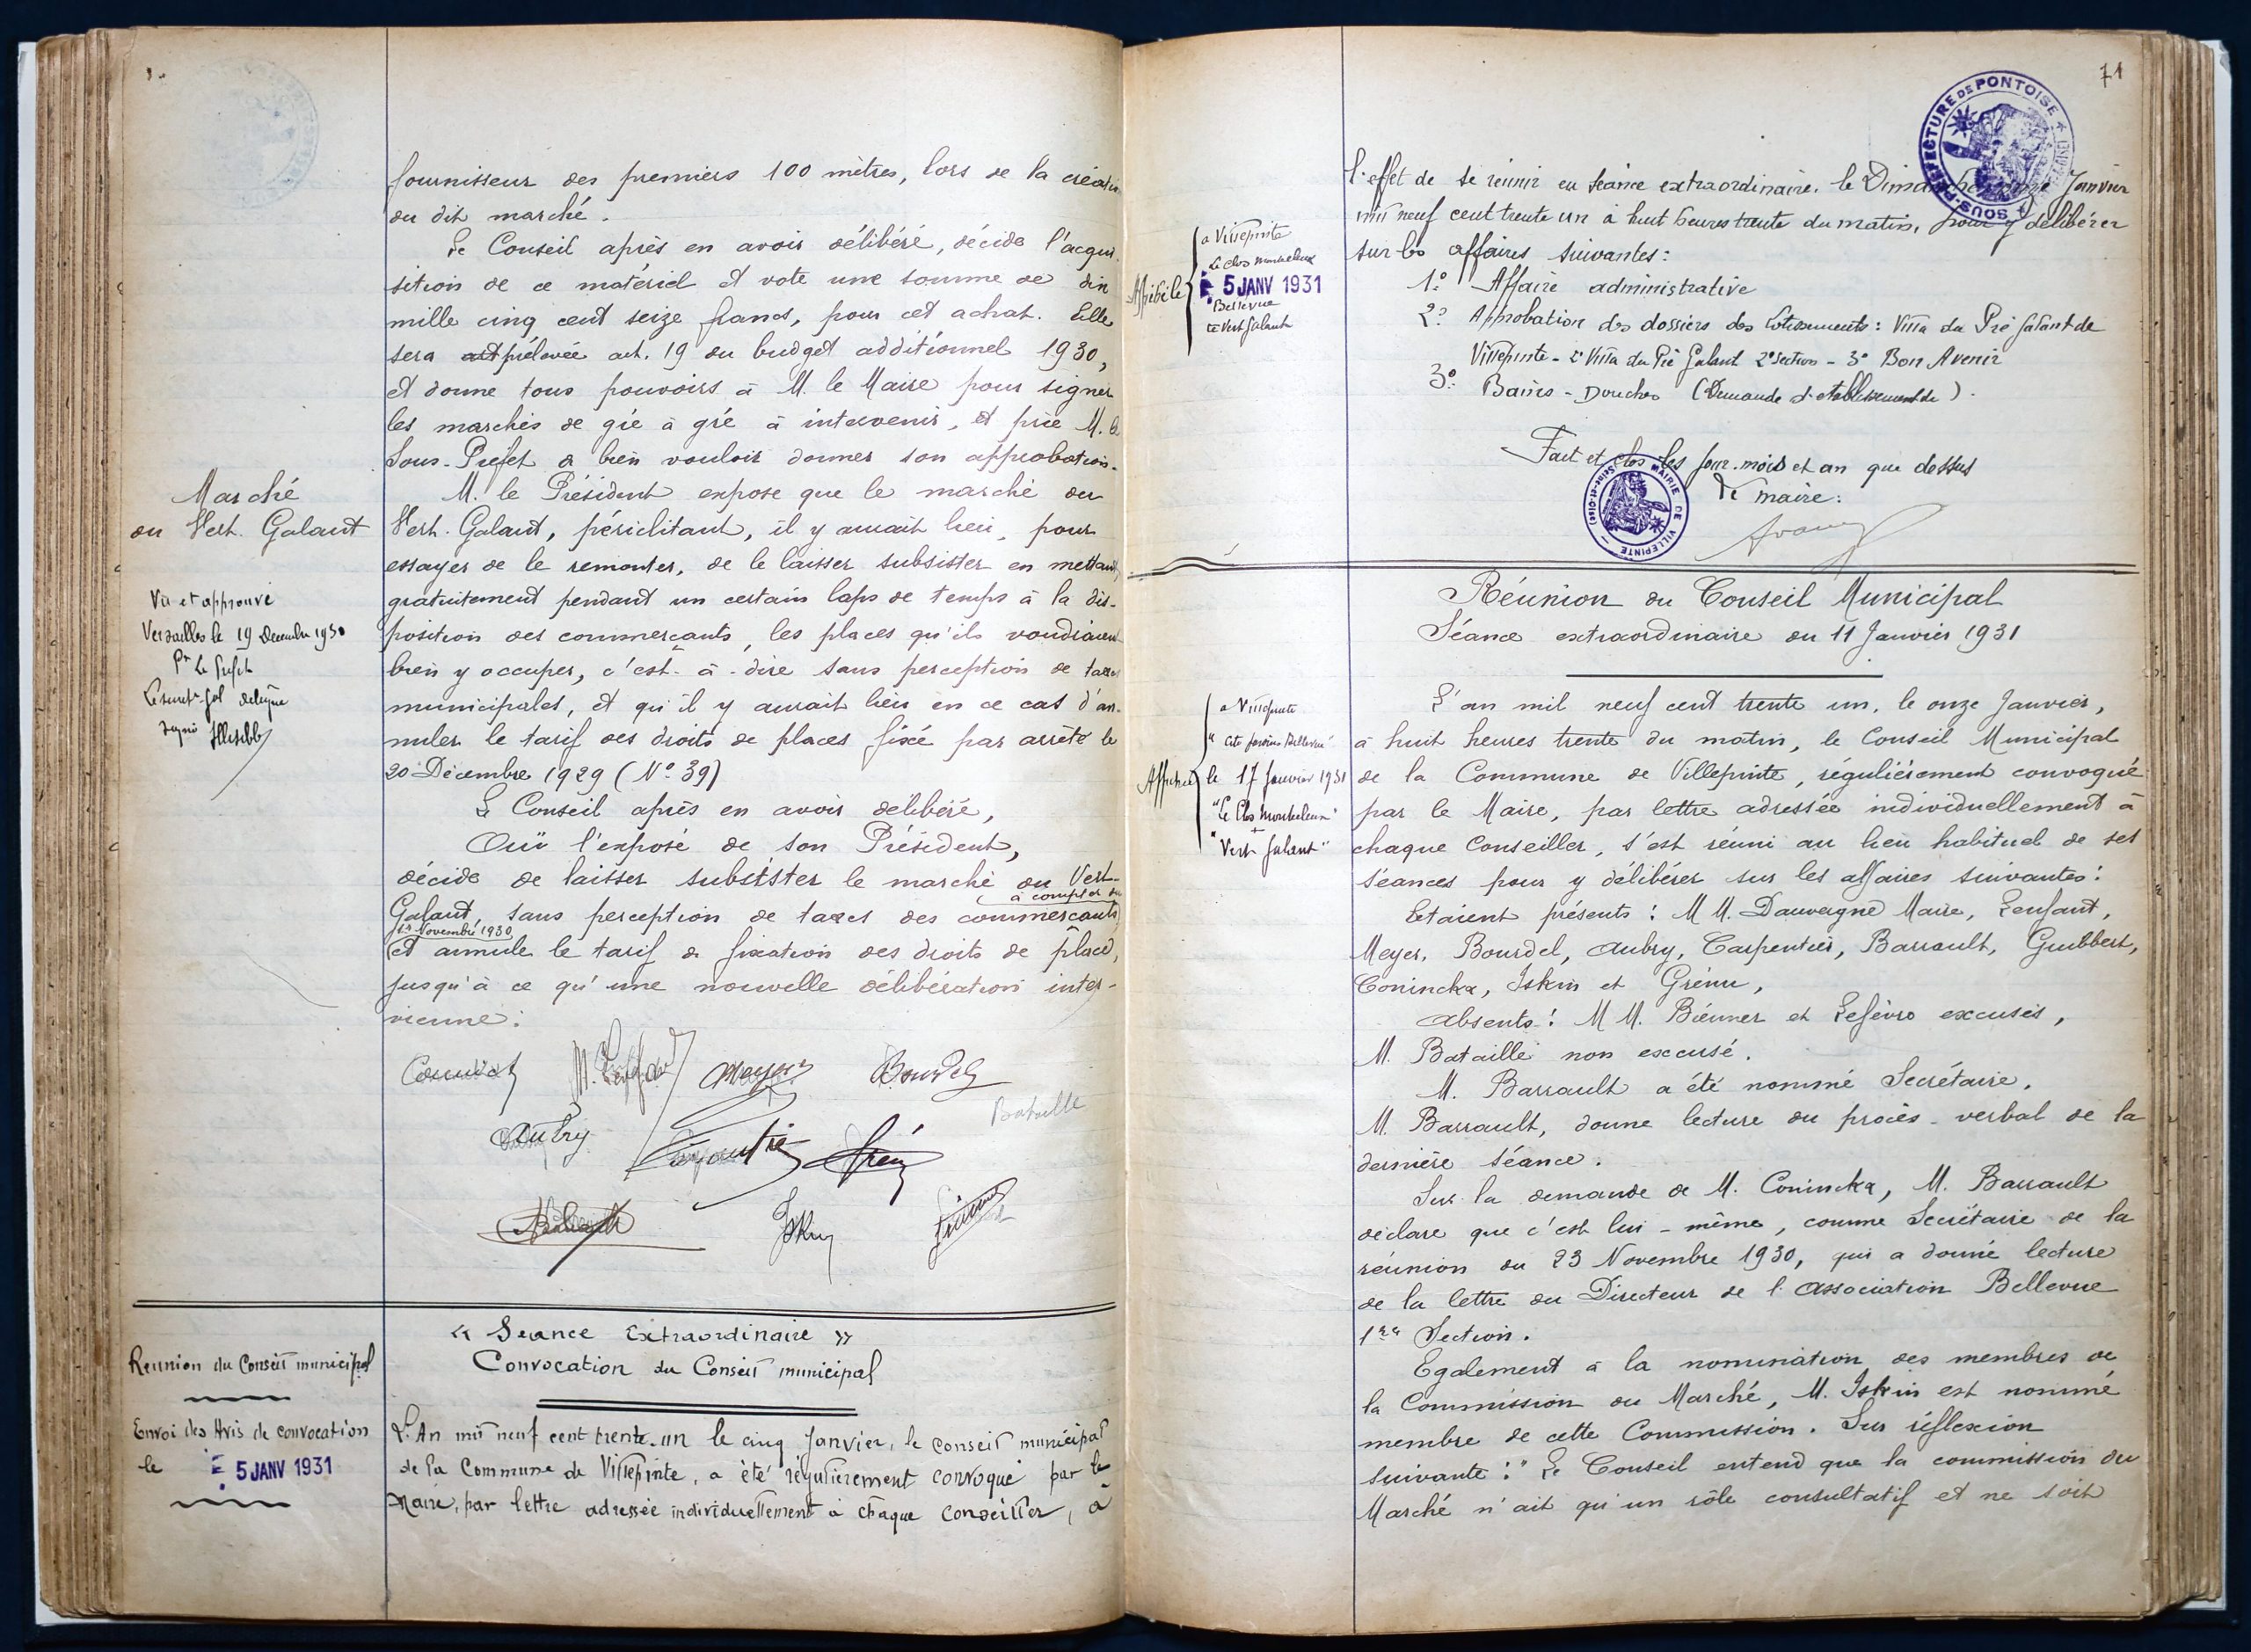 fournisseur des premiers 100 mètres, lors de la création
du dit marché.
Le Conseil après en avoir délibéré, décide l'acqui-
sition de ce matériel et vote une somme de dix
mille cinq cent seize francs, pour cet achat. Elle
sera prélevée art. 19 du budget additionnel 1930,
et donne tous pouvoirs à M. le Maire pour signer
les marchés de gré à gré à intervenir, et prie M. le
Sous-Préfet de bien vouloir donner son approbation.
Marché
du Vert. Galant
M. le Président expose que le marché du
Vert. Galant, périclitant, il y aurait lieu, pour
essayer de le remonter, de le laisser subsister en mettant
gratuitement pendant un certain laps de temps à la dis-
position des commerçants, les places qu'ils voudraient
bien y occuper, c'est-à-dire sans perception de taxes
municipales, et qu'il y aurait lieu en ce cas d'an-
nuler le tarif des droits de places fixé par arrêté le
20 Décembre 1929 (No. 39)
Vu et approuvé
Versailles le 19 Decembre 1930
Pr Le Prefet
Le secret. Gal délégué
signé
Le Conseil après en avoir délibéré,
Ouï l'exposé de son Président,
décide de laisser subsister le marché du Vert-
à compter du
Galant, sans perception de taxes des commerçants
1er Novembre 1930
et annule le tarif de fixation des droits de place,
jusqu'à ce qu'une nouvelle délibération inter-
vienne.
Meyer Bourdel
Aubry Carpentier Bataille
Iskin
Reunion du Conseil municipal
Envoi des Avis de convocation
le 5 JANV 1931
« Seance Extraordinaire »
Convocation du Conseil municipal
L'An mil neuf cent trente-un le cinq Janvier, le conseil municipal
de la Commune de Villepinte, a été régulièrement convoqué par le
Maire, par lettre adressée individuellement à chaque Conseiller, à
71
SOUS-PREFECTURE DE PONTOISE
l'effet de se réunir en séance extraordinaire, le Dimanche onze Janvier
mil neuf cent trente un à huit heures trente du matin, pour y délibérer
sur les affaires suivantes:
1o. Affaire administrative
2o. Approbation des dossiers des Lotissements: Villa du Pré Galant de
Villepinte - 2o Villa du Pré Galant 2e Section - 3o Bon Avenir
3o. Bains-Douches (Demande d'etablissement de).
Affiché le
a Villepinte
Le clos montceleux
5 JANV 1931
Bellevue
Le Vert Galant
Fait et clos les jour. mois et an que dessus
Le maire:
MAIRIE DE VILLEPINTE (Seine-et-Oise)
Réunion du Conseil Municipal
Séance extraordinaire du 11 Janvier 1931
L'an mil neuf cent trente un, le onze Janvier,
à huit heures trente du matin, le Conseil Municipal
de la Commune de Villepinte, régulièrement convoqué
par le Maire, par lettre adressée individuellement à
chaque Conseiller, s'est réuni au lieu habituel de ses
séances pour y délibérer sur les affaires suivantes:
Affiché
a Villepinte
" Bellevue
le 17 Janvier 1931
"Le Clos Montceleux"
"Vert Galant"
Etaient présents: M M. Dauvergne Maire, Lenfant,
Meyer, Bourdel, Aubry, Carpentier, Barrault, Guibbert,
Coninckx, Iskin et Grénu,
Absents: M M. Biénner et Lefèvre excusés,
M. Bataille non excusé.
M. Barrault a été nommé Secrétaire.
M. Barrault, donne lecture du procès-verbal de la
dernière séance.
Sur la demande de M. Coninckx, M. Barrault
déclare que c'est lui-même, comme Secrétaire de la
réunion du 23 Novembre 1930, qui a donné lecture
de la lettre du Directeur de l'Association Bellevue
1ère Section.
Egalement à la nomination des membres de
la Commission du Marché, M. Iskin est nommé
membre de cette Commission. Sur réflexion
suivante: "Le Conseil entend que la commission du
Marché n'ait qu'un rôle consultatif et ne soit